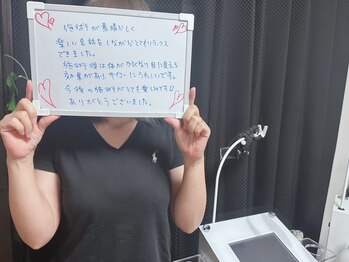 施術が素晴らしく
楽しい会話をしながらとてもリラックス
できました。
施術後は体が力がなり目に見える
効果があり サイコーにうれしいです。
今後の施術がとても楽しみです
ありがとうございました。